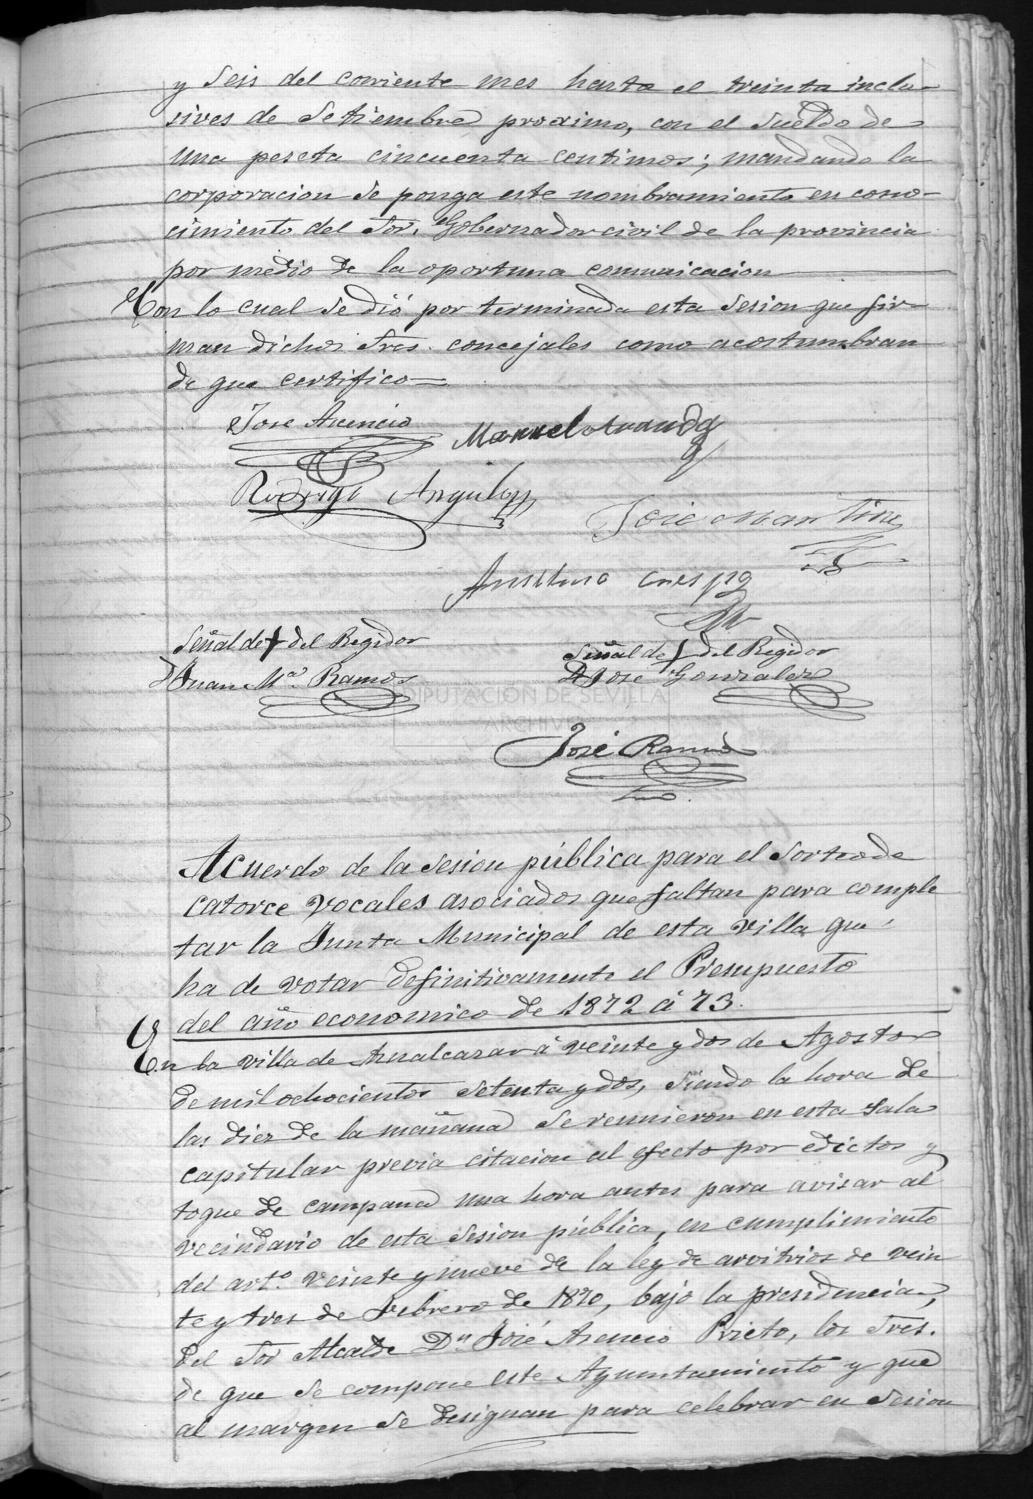 y Seis del corriente mes hasta el treinta inclu-
sives de Setiembre proximo, con el Sueldo de
una peseta cincuenta centimos; mandando la
corporacion se ponga este nombramiento en cono-
cimiento del Sor. Gobernador civil de la provincia
por medio de la oportuna comunicacion
Con lo cual se dió por terminada esta Sesion que fir-
man dichos Sres. concejales como acostumbran
de que certifico
Jose Asencio
Manuel
Rodrigo Angulo
Jose Martinez
Anselmo Crespo
Señal de + del Regidor
Juan Mª. Ramos
Señal de + del Regidor
José Gonzalez
José Ramos
DIPUTACIÓN DE SEVILLA
ARCHIVO
Acuerdo de la Sesion pública para el Sorteo de
catorce Vocales asociados que faltan para comple
tar la Junta Municipal de esta Villa que
ha de votar definitivamente el Presupuesto
del año economico de 1872 á 73.
En la Villa de Aznalcazar á veinte y dos de Agosto
de mil ochocientos setenta y dos, siendo la hora de
las diez de la mañana se reunieron en esta Sala
capitular previa citacion al efecto por edictos y
toque de campana una hora antes para avisar al
vecindario de esta Sesion pública, en cumplimiento
del artº. veinte y nueve de la ley de arvitrios de vein
te y tres de Febrero de 1870, bajo la presidencia,
del Sor Alcalde Dn José Asencio Prieto, los Sres.
de que se compone este Ayuntamiento y que
al margen se designan para celebrar en Sesion